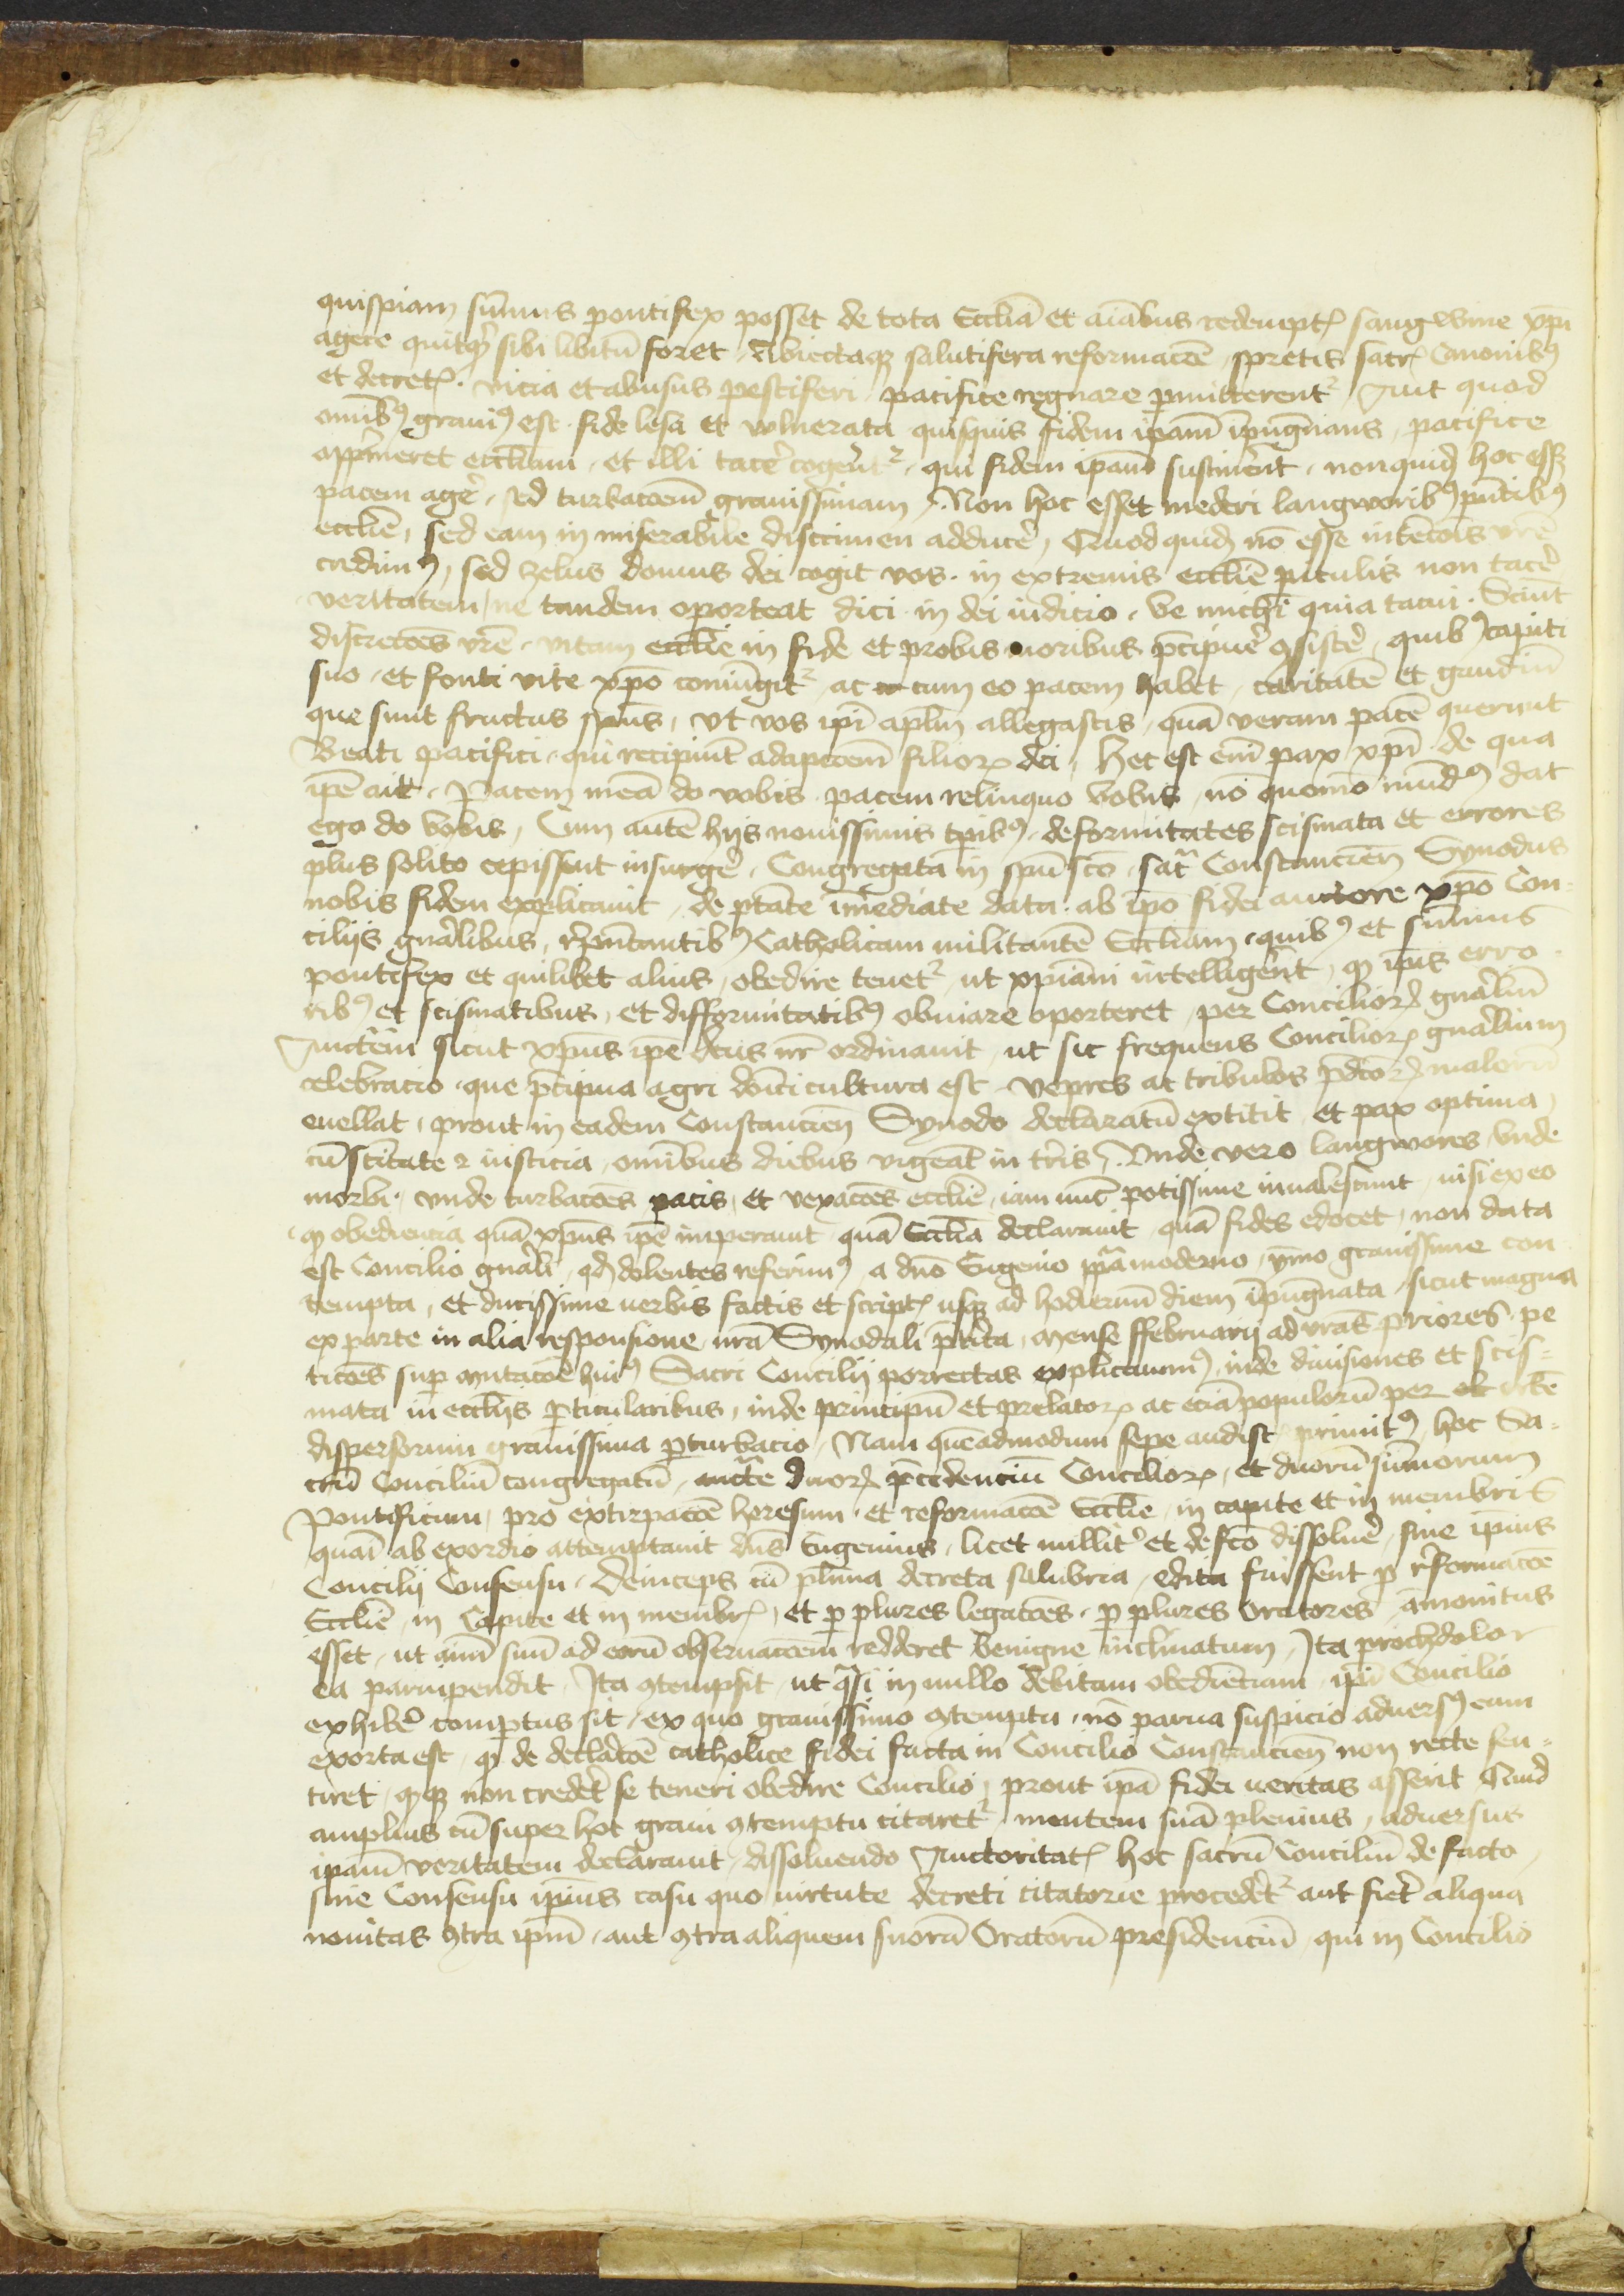 quispiam sum̄us pontifex posset de tota Eccl̄ia et aīabus redempt͛ sangwine xp̄i
agere quitq̄ sibi libitū foret, Abiectaqꝫ salutifera reformac̄oe, spretis sacr͛ Canonibꝰ
et decret͛. vicia et abusus pestiferi pacifice regnare p̱mitterent᷑, Aut quod
om̄ibꝰ grauiꝰ est. fide lesa et vulnerata quisquis fidem ip̄am īpugnans, pacifice
opp̄meret eccl̄iam, et illi tacē cogerent᷑, qui fidem ip̄am sustinērt, nonquid hoc essꝫ
pacem agē, sed turbac̄oem grauissimam, Non hoc esset mederi langworibꝰ pn̄tibꝰ
eccl̄ie, sed eam in miserabile discrimen adducē, Quod quid nō esse intenc̄ois vr̄e
credimꝰ, sed zelus domus dei cogit vos. in extremis eccl̄ie piculis non tacē
veritatem, ne tandem oporteat dici in dei iudicio. Ve michi quia tacui. Sciūt
discrec̄oes vr̄e, vitam eccl̄ie in fide et probis moribus p̄cipue ꝯsistē, quibꝰ capiti
suo, et fonti vite xp̄o coniūgit᷑, ac cum eo pacem habet, caritatē et gaudiū
que sunt fructus sp̄us, vt vos ip̄i ap̄lm allegastis, quā veram pacē querunt
Beati pacifici, qui recipiūt adopc̄oem filioꝝ dei, Hec est em̄ pax xp̄i de qua
ip̄e ait. Pacem meā do vobis pacem relinquo vobis, nō quomō mūdꝰ dat
ego do vobis, Cum autē hijs nouissimis tp̄ibꝰ, deformitates scismata et errores
plus solito cepissent insurgē, Congregata in sp̄u sc̄o, sacr̄ Constancien̄ Synodus
nobis fidem explicauit, de p̄tate īmediate data ab ip̄o fidei auctore xp̄o Con-
cilijs gn̄alibus, rep̄ntantibꝰ Catholicam militantē Eccl̄iam, quibꝰ et sum̄us
pontifex et quilibet alius, obedire tenet᷑, ut xp̄iani intelligērt, ꝙ ip̄is erro-
ribꝰ et scismatibus, et difformitatibꝰ obuiare oporteret, per Concilioꝝ gn̄aliū
Auctē̄m sicut xp̄us ip̄e de͠us nr̄ ordinauit, ut sic frequens Concilioꝝ gn̄alium
celebracio, que p̄cipua agri dn̄ici cultura est, vepres ac tribulos p̄dc̄oꝝ malorū
euellat, prout in eadem Constancien̄ Synodo declaratū extitit, et pax optima,
cū sc̄itate ⁊ iusticia, om̄ibus diebus vigeat in tr̄is. Vnde vero langwores, vnde
morbi, vnde turbac̄oes pacis, et vexac̄oes eccl̄ie, iam nūc potissime inualescunt, nisi ex eo
ꝙ obediencia quā xp̄us ip̄e imperauit quā Eccl̄ia declarauit, quā fides edocet, non data
est Concilio gn̄ali, qd̄ dolentes referimꝰ, a dn̄o Eugenio pp̄a moderno, ymo grauissime con-
tempta, et ducissime verbis factis et script͛ usqꝫ ad hodiernū diem īpugnata, sicut magna
ex parte in alia responsione, nr̄a Synodali p̄terita, mense ffebruarij ad vr̄as priores pe
tic̄oes sup̱ mutac̄oe huiꝰ Sacri Concilij porrectas explicauimꝰ, inde diuisiones et scis-
mata in eccl̄ijs p̱ticularibus, inde principū et prelatoꝝ ac eciā populorū per orbē
dispersorum grauissima p̱turbacio, Nam quēadmodum sepe audist͛ primitꝰ, hoc Sa-
crū Conciliū congregatū, auctē duoꝝ p̄cedenciū Concilioꝝ, et duorū sum̄orum
Pontificum, pro extirpac̄oe heresum, et reformac̄oe Eccl̄ie, in capite et in membris
quam ab exordio attemptauit dn̄s Eugenius, licet nullit̄ et de fc̄o dissoluē, sine ip̄ius
Concilij Consensu. Deinceps cū pl̄ima decreta salubria, edita fuissent p̱ reformac̄oe
Eccl̄ie, in Capite et in membr͛, et p̱ plures legac̄oes, p̱ plures oratores amonitus
esset, ut aīm suū ad eorū obseruac̄oem redderet benigne inclinatum, Ita prochdolor
ea paruipendit, Ita ꝯtempsit, ut q̄si in nullo debitam obedienciam, ip̄i Concilio
exhibē compertus sit, ex quo grauissimo ꝯtemptu, nō parua suspicio aduersꝰ eum
exorta est, ꝙ de declac̄oe catholice fidei facta in Concilio Constancien̄ non recte sen-
tiret, ꝙqꝫ non credēt se teneri obedire Concilio, prout ip̄a fidei veritas asserit, Quid
amplius cū super hoc graui ꝯtemptu citaret᷑ mentem suā plenius, aduersus
ip̄am veritatem declarauit, dissoluendo Auctoritat͛ hoc sacrū Conciliū de facto,
sine Consensu ip̄ius casu quo virtute decreti citatorie procedēt᷑ aut fiēt aliqua
nouitas ꝯtra ip̄m, aut ꝯtra aliquem suorū Oratorū presidenciū, qui in Concilio